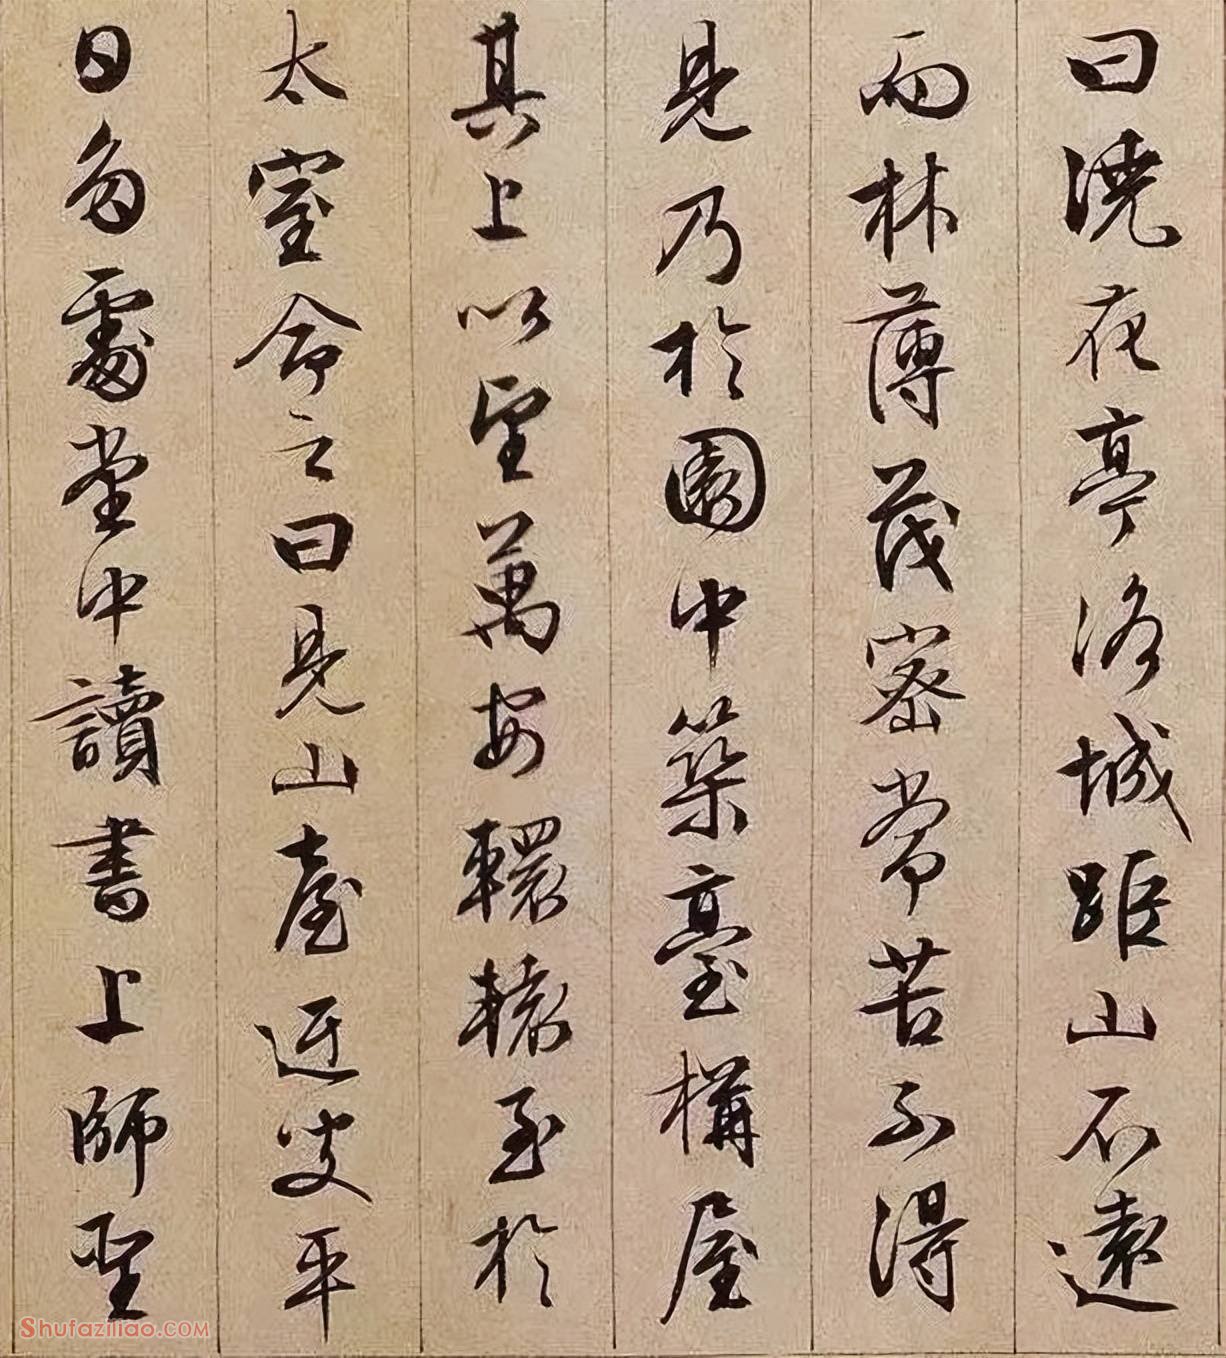 曰澆花亭洛城距山不遠
而林薄茂密常苦不得
見乃於園中築臺構屋
其上以望萬安轘轅至於
太室命之曰見山臺迂叟平
日多處堂中讀書上師聖
Shufaziliao.COM